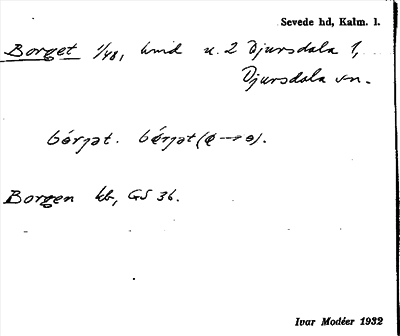 Sevede hd, Kalm. l.
Borget 1/48, u. 2 Djursdala 1,
Djursdala sn.
bórjət. bórjət (ɵ → ө).
Borgen kb, GS 36.
Ivar Modéer 1932